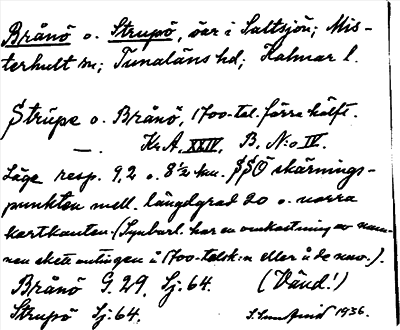 Brånö o. Strupö, öar i Saltsjön; Mis-
terhult sn; Tunaläns hd; Kalmar l.
Strüpe o. Brånö, 1700-tal. förra hälft.
—. Kr. A. XXIV, B. N:o IV.
Läge resp. 9,2 o. 8½ km. SSÖ skärnings-
punkten mell. längdgrad 20 o. norra
kartkanten. (Synbarl. har en omkastning av nam-
nen skett antingen å 1700-talsk:n eller å de nuv.).
Brånö G. 29. Sj. 64. (Vänd!)
Strupö Sj. 64. 1936.